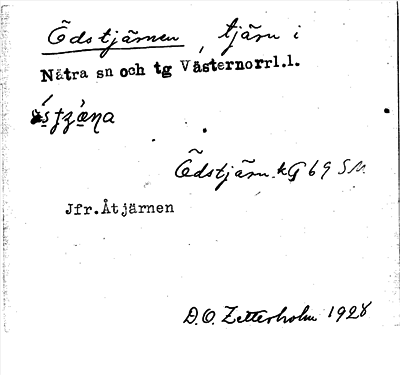 Ödstjärnen, tjärn i
Nätra sn och tg Västernorrl.l.
Ödstjärn. kG 69 SM
Jfr.Åtjärnen
D.O. Zetterholm 1928